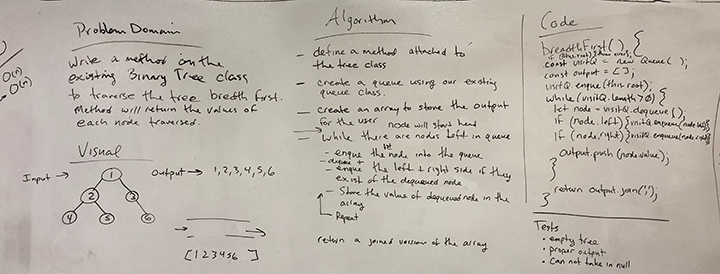 O(n)
O(n)
Problem Domain
Write a method on the
existing Binary Tree class
to traverse the tree breath first.
Method will return the values of
each node traversed.
Visual
Input → 1 Output → 1,2,3,4,5,6
2 3
4 5 6
[123456 ]
Algorithm
- define a method attached to
the tree class
- create a queue using our existing
queue class.
- create an array to store the output
for the user node will start head
- while there are nodes left in queue
- enque the 1st node into the queue
- dequeue +
- enque the left + right side if they
exist of the dequeued node
- Store the value of dequeued node in the
array
Repeat
return a joined version of the array
Code
breadthFirst() {
if (!this.root)
const visitQ = new Queue( );
const output = [ ];
visitQ.enque(this.root);
while (visitQ.length > 0) {
let node = visitQ.dequeue( );
if (node.left) {visitQ.enqueue(node.left)}
if (node.right) {visitQ.enqueue(node.right)}
output.push(node.value);
}
return output.join(',');
}
Tests
• empty tree
• proper output
• Can not take in null